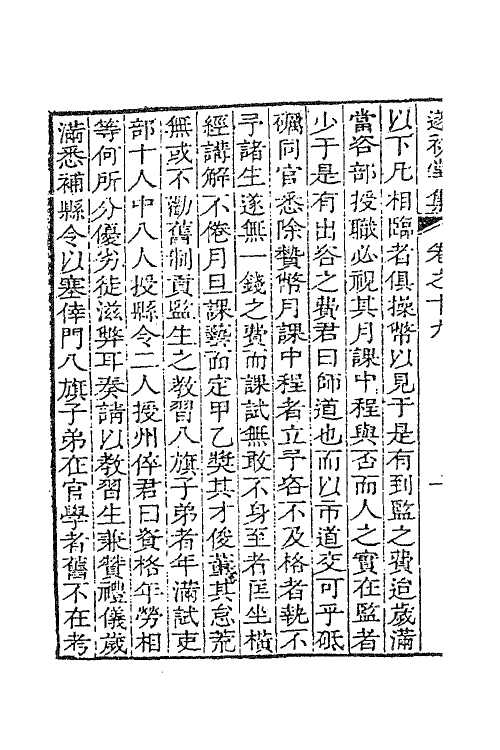 遂初堂集 卷之十九 一
以下凡相臨者俱操幣以見于是有到監之費迨歲滿
當咨部授職必視其月課中程與否而人之實在監者
少于是有出咨之費君曰師道也而以市道交可乎砥
礪同官悉除贄幣月課中程者立予咨不及格者執不
予諸生遂無一錢之費而課試無敢不身至者匡坐橫
經講解不倦月旦課藝而定甲乙獎其才俊董其怠荒
無或不勸舊制貢監生之教習八旗子弟者年滿試吏
部十人中八人授縣令二人授州倅君曰資格年勞相
等何所分優劣徒滋弊耳奏請以教習生兼贊禮儀歲
滿悉補縣令以塞倖門八旗子弟在官學者舊不在考